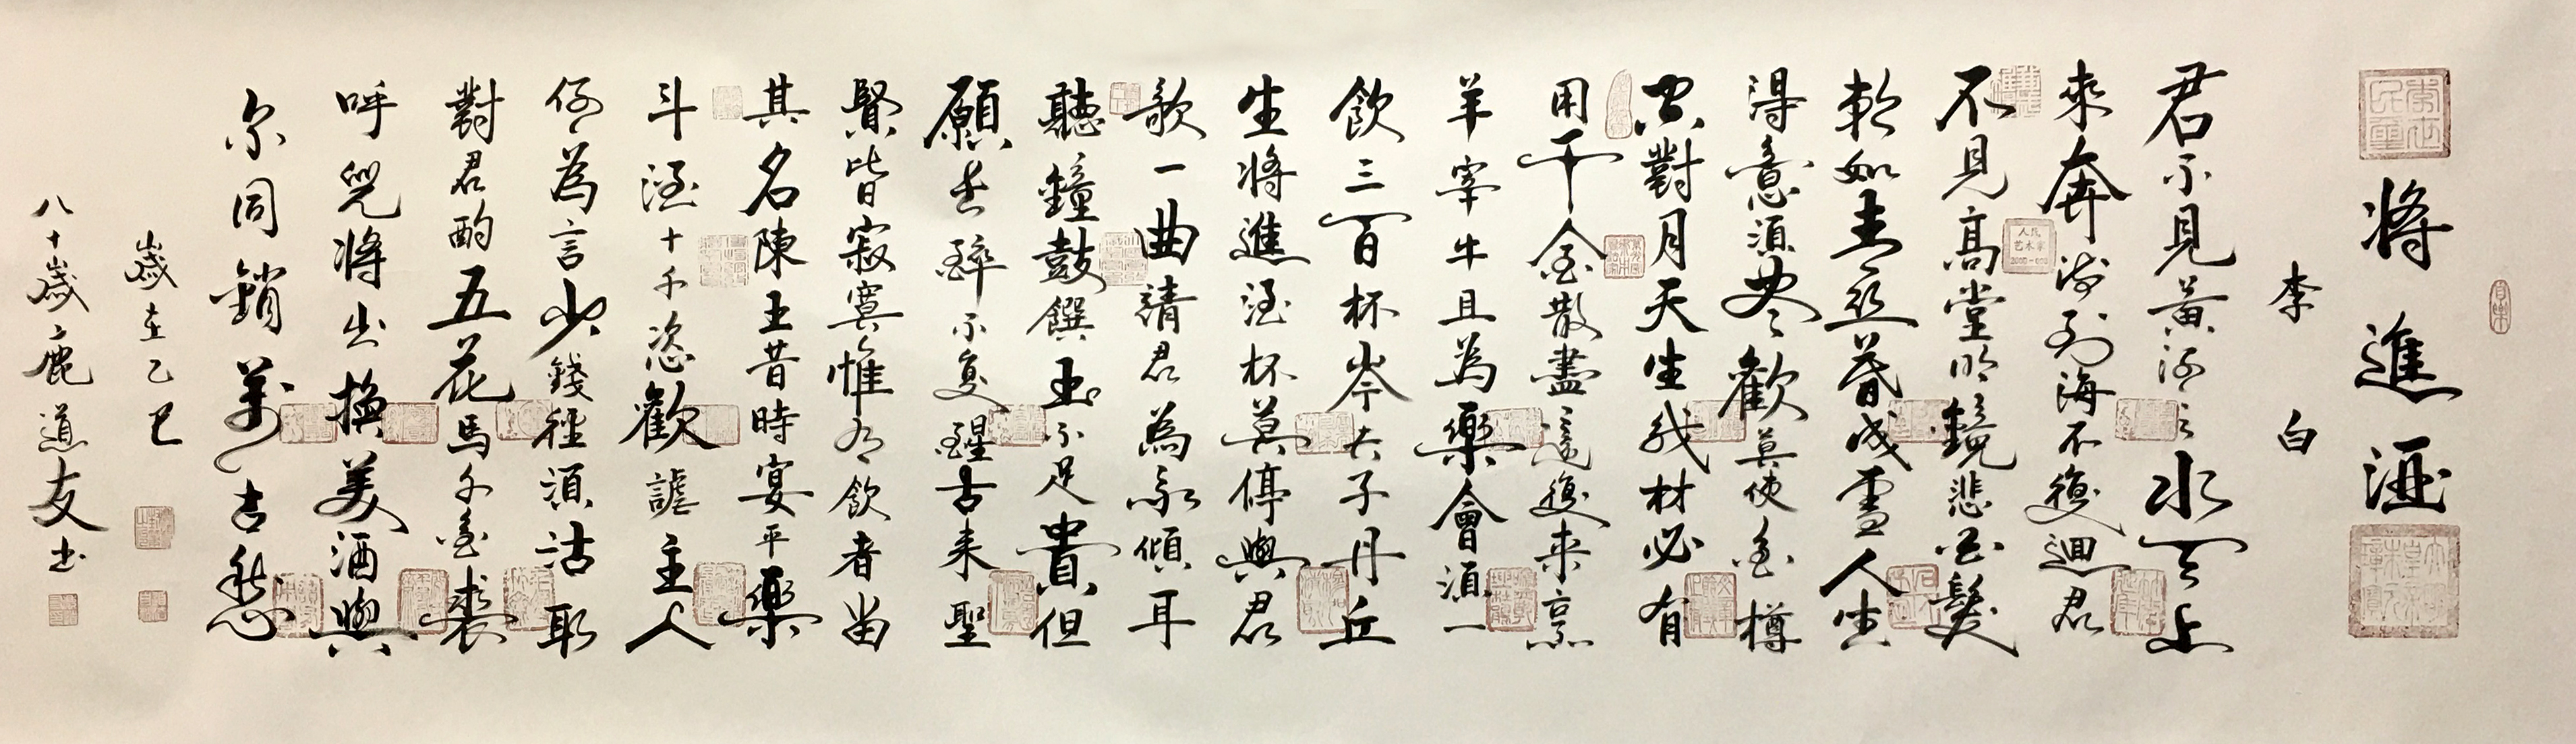 將進酒
李白
君不見黃河之水天上
來奔流到海不復迴君
不見高堂明鏡悲白髮
朝如青絲暮成雪人生
得意須盡歡莫使金樽
空對月天生我材必有
用千金散盡還復来烹
羊宰牛且為樂會須一
飲三百杯岑夫子丹丘
生將進酒杯莫停與君
歌一曲請君為我傾耳
聽鐘鼓饌玉不足貴但
願長醉不復醒古来聖
賢皆寂寞惟有飲者留
其名陳王昔時宴平樂
斗酒十千恣歡謔主人
何為言少錢徑須沽取
對君酌五花馬千金裘
呼兒將出換美酒與
尔同銷萬古愁
歲在乙巳
八十歲鹿道友书
人民
艺术家